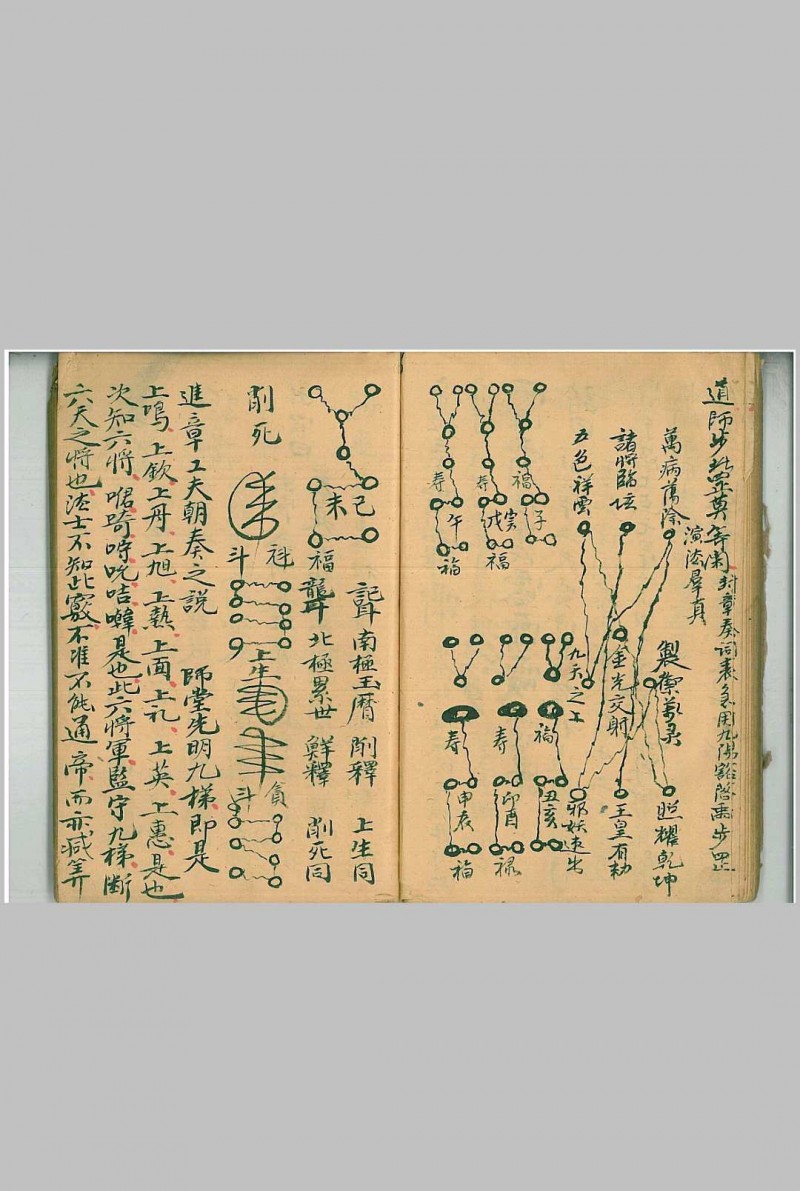 道師步罡 封章奏詞表 用九 步罡
演法羣真
萬病蕩除
照耀乾坤
諸將臨坛
金光交射
玉皇有勅
五色祥雲
九天之上
邪妖速出
福
子
寿
戌
福
寿
午
福
福
丑亥
寿
卯酉
禄
寿
申辰
福
南極玉曆 削釋 上生同
未 己
福
北極累世 鮮釋 削死同
削死
魁
斗
上生
貪
斗
進章工夫朝奏之說 師堂先明九梯即是
上鳴上欽上丹上旭上熱上面上礼上英上惠是也
次知六將 是也此六將軍監守九梯斷
六天之將也法士不知此竅不准不能通帝而亦减筭